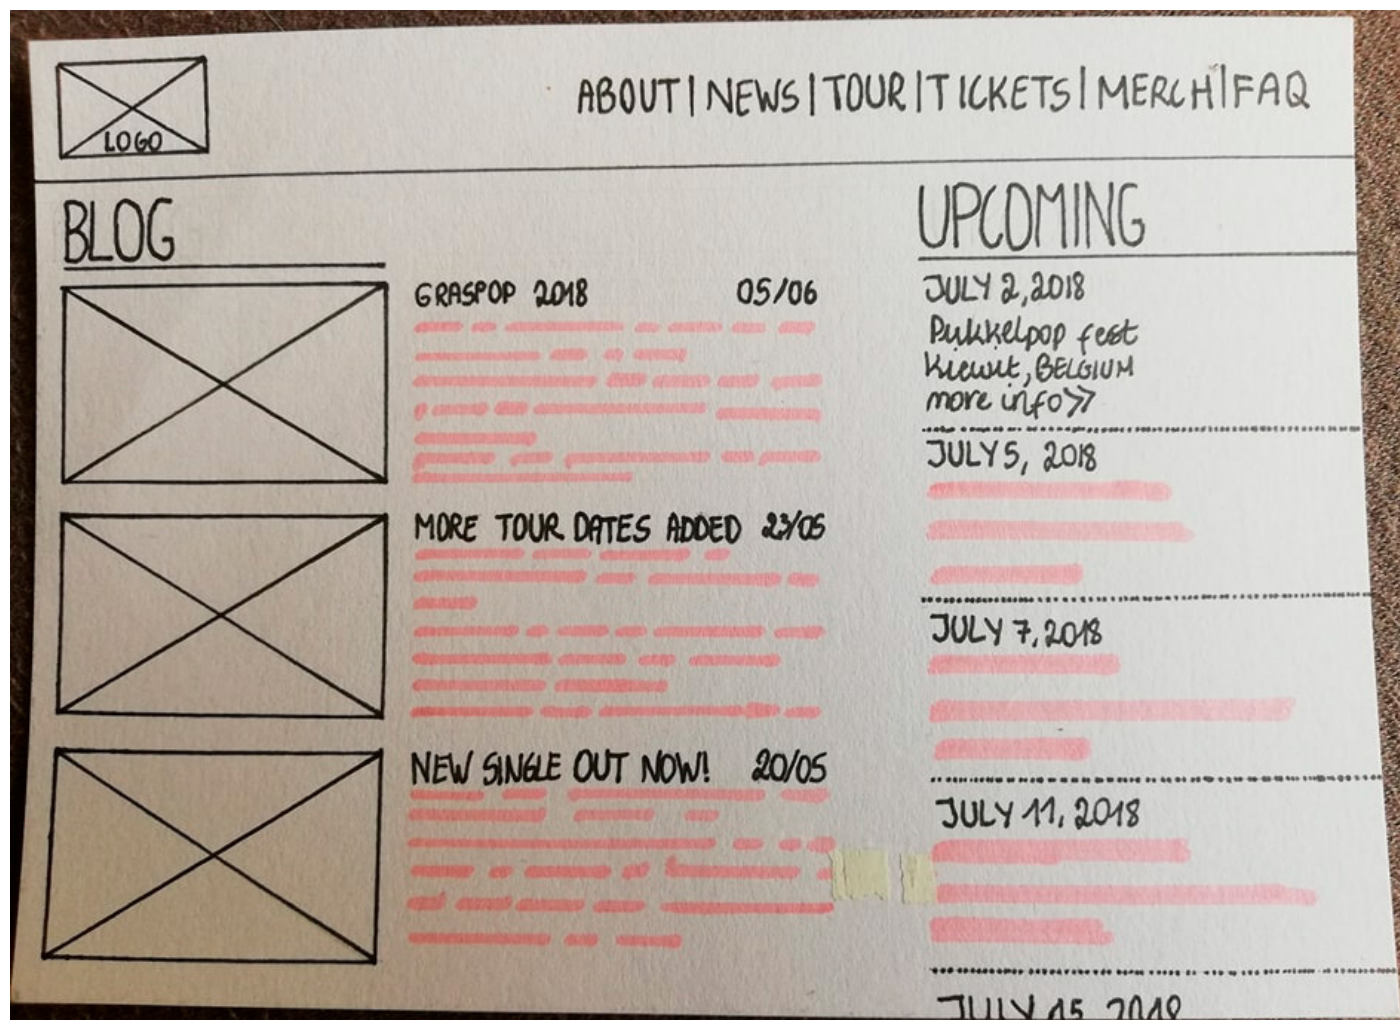 LOGO
ABOUT | NEWS | TOUR | TICKETS | MERCH | FAQ
BLOG
GRASPOP 2018 05/06
MORE TOUR DATES ADDED 23/05
NEW SINGLE OUT NOW! 20/05
UPCOMING
JULY 2, 2018
Pukkelpop fest
Kiewit, BELGIUM
more info >>
JULY 5, 2018
JULY 7, 2018
JULY 11, 2018
JULY 15, 2018